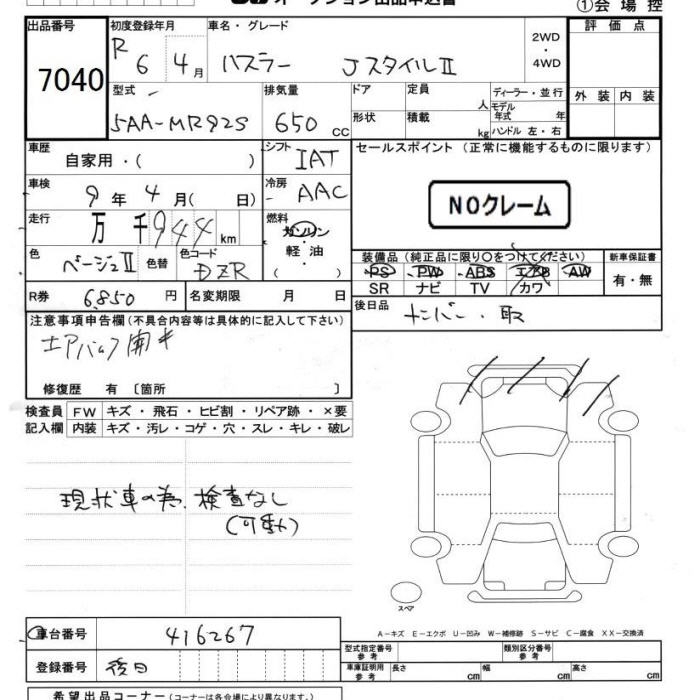 オークション出品申込書
①会場控
出品番号 7040
初度登録年月 R 6 年 4 月
車名・グレード ハスラー JスタイルⅡ
2WD・4WD
評価点
外装 内装
型式 5AA-MR92S
排気量 650 cc
ドア 形状
定員 人
積載 kg
ディーラー・並行
モデル年式 年
ハンドル 左・右
車歴 自家用・( )
シフト IAT
セールスポイント (正常に機能するものに限ります)
車検 9年 4月( 日)
冷房 AAC
NOクレーム
走行 万 千 944 km
燃料 ガソリン 軽油 ( )
色 ベージュⅡ 色替 色コード DZR
装備品 (純正品に限り〇をつけてください)
新車保証書 有・無
PS PW ABS エアB AW
SR ナビ TV カワ
R券 6,850 円 名変期限 月 日
後日品 ナンバー・取
注意事項申告欄 (不具合内容等は具体的に記入して下さい)
エアバック開キ
修復歴 有 〔箇所 〕
検査員記入欄
FW キズ・飛石・ヒビ割・リペア跡・×要
内装 キズ・汚レ・コゲ・穴・スレ・キレ・破レ
現状車の為、検査なし
(可動)
スペア
A-キズ E-エクボ U-凹み W-補修跡 S-サビ C-腐食 XX-交換済
車台番号 416267
型式指定番号 参考
類別区分番号 参考
登録番号 後日
車庫証明用 参考 長さ cm 幅 cm 高さ cm
希望出品コーナー (コーナーは各会場により異なります。)